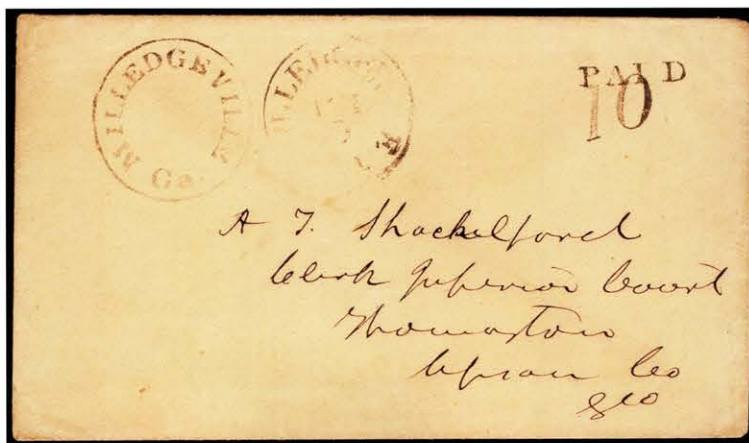 MILLEDGEVILLE Ga.
PAID
10
A T. Shackelford
Clerk Superior Court
Thomaston
Upson Co
Geo